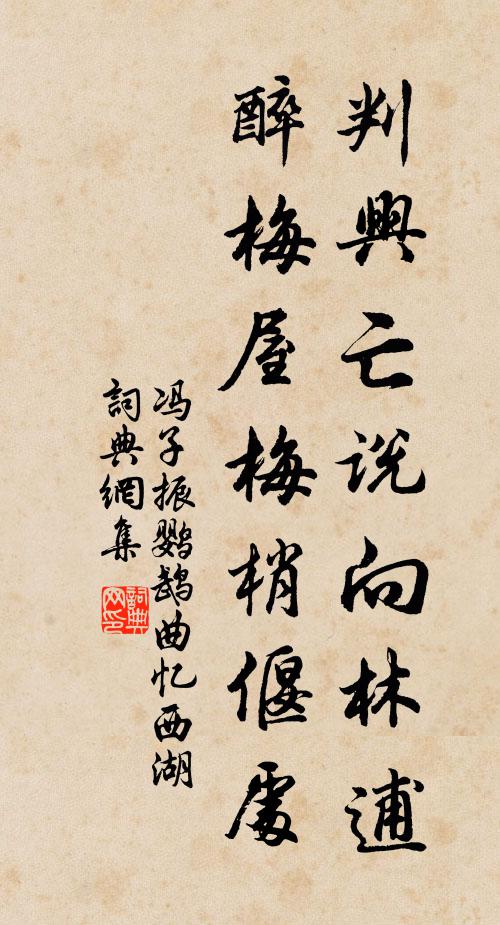 判興亡説向林逋
醉梅屋梅梢偃處
冯子振鹦鹉曲忆西湖
詞典網集
詞典网印